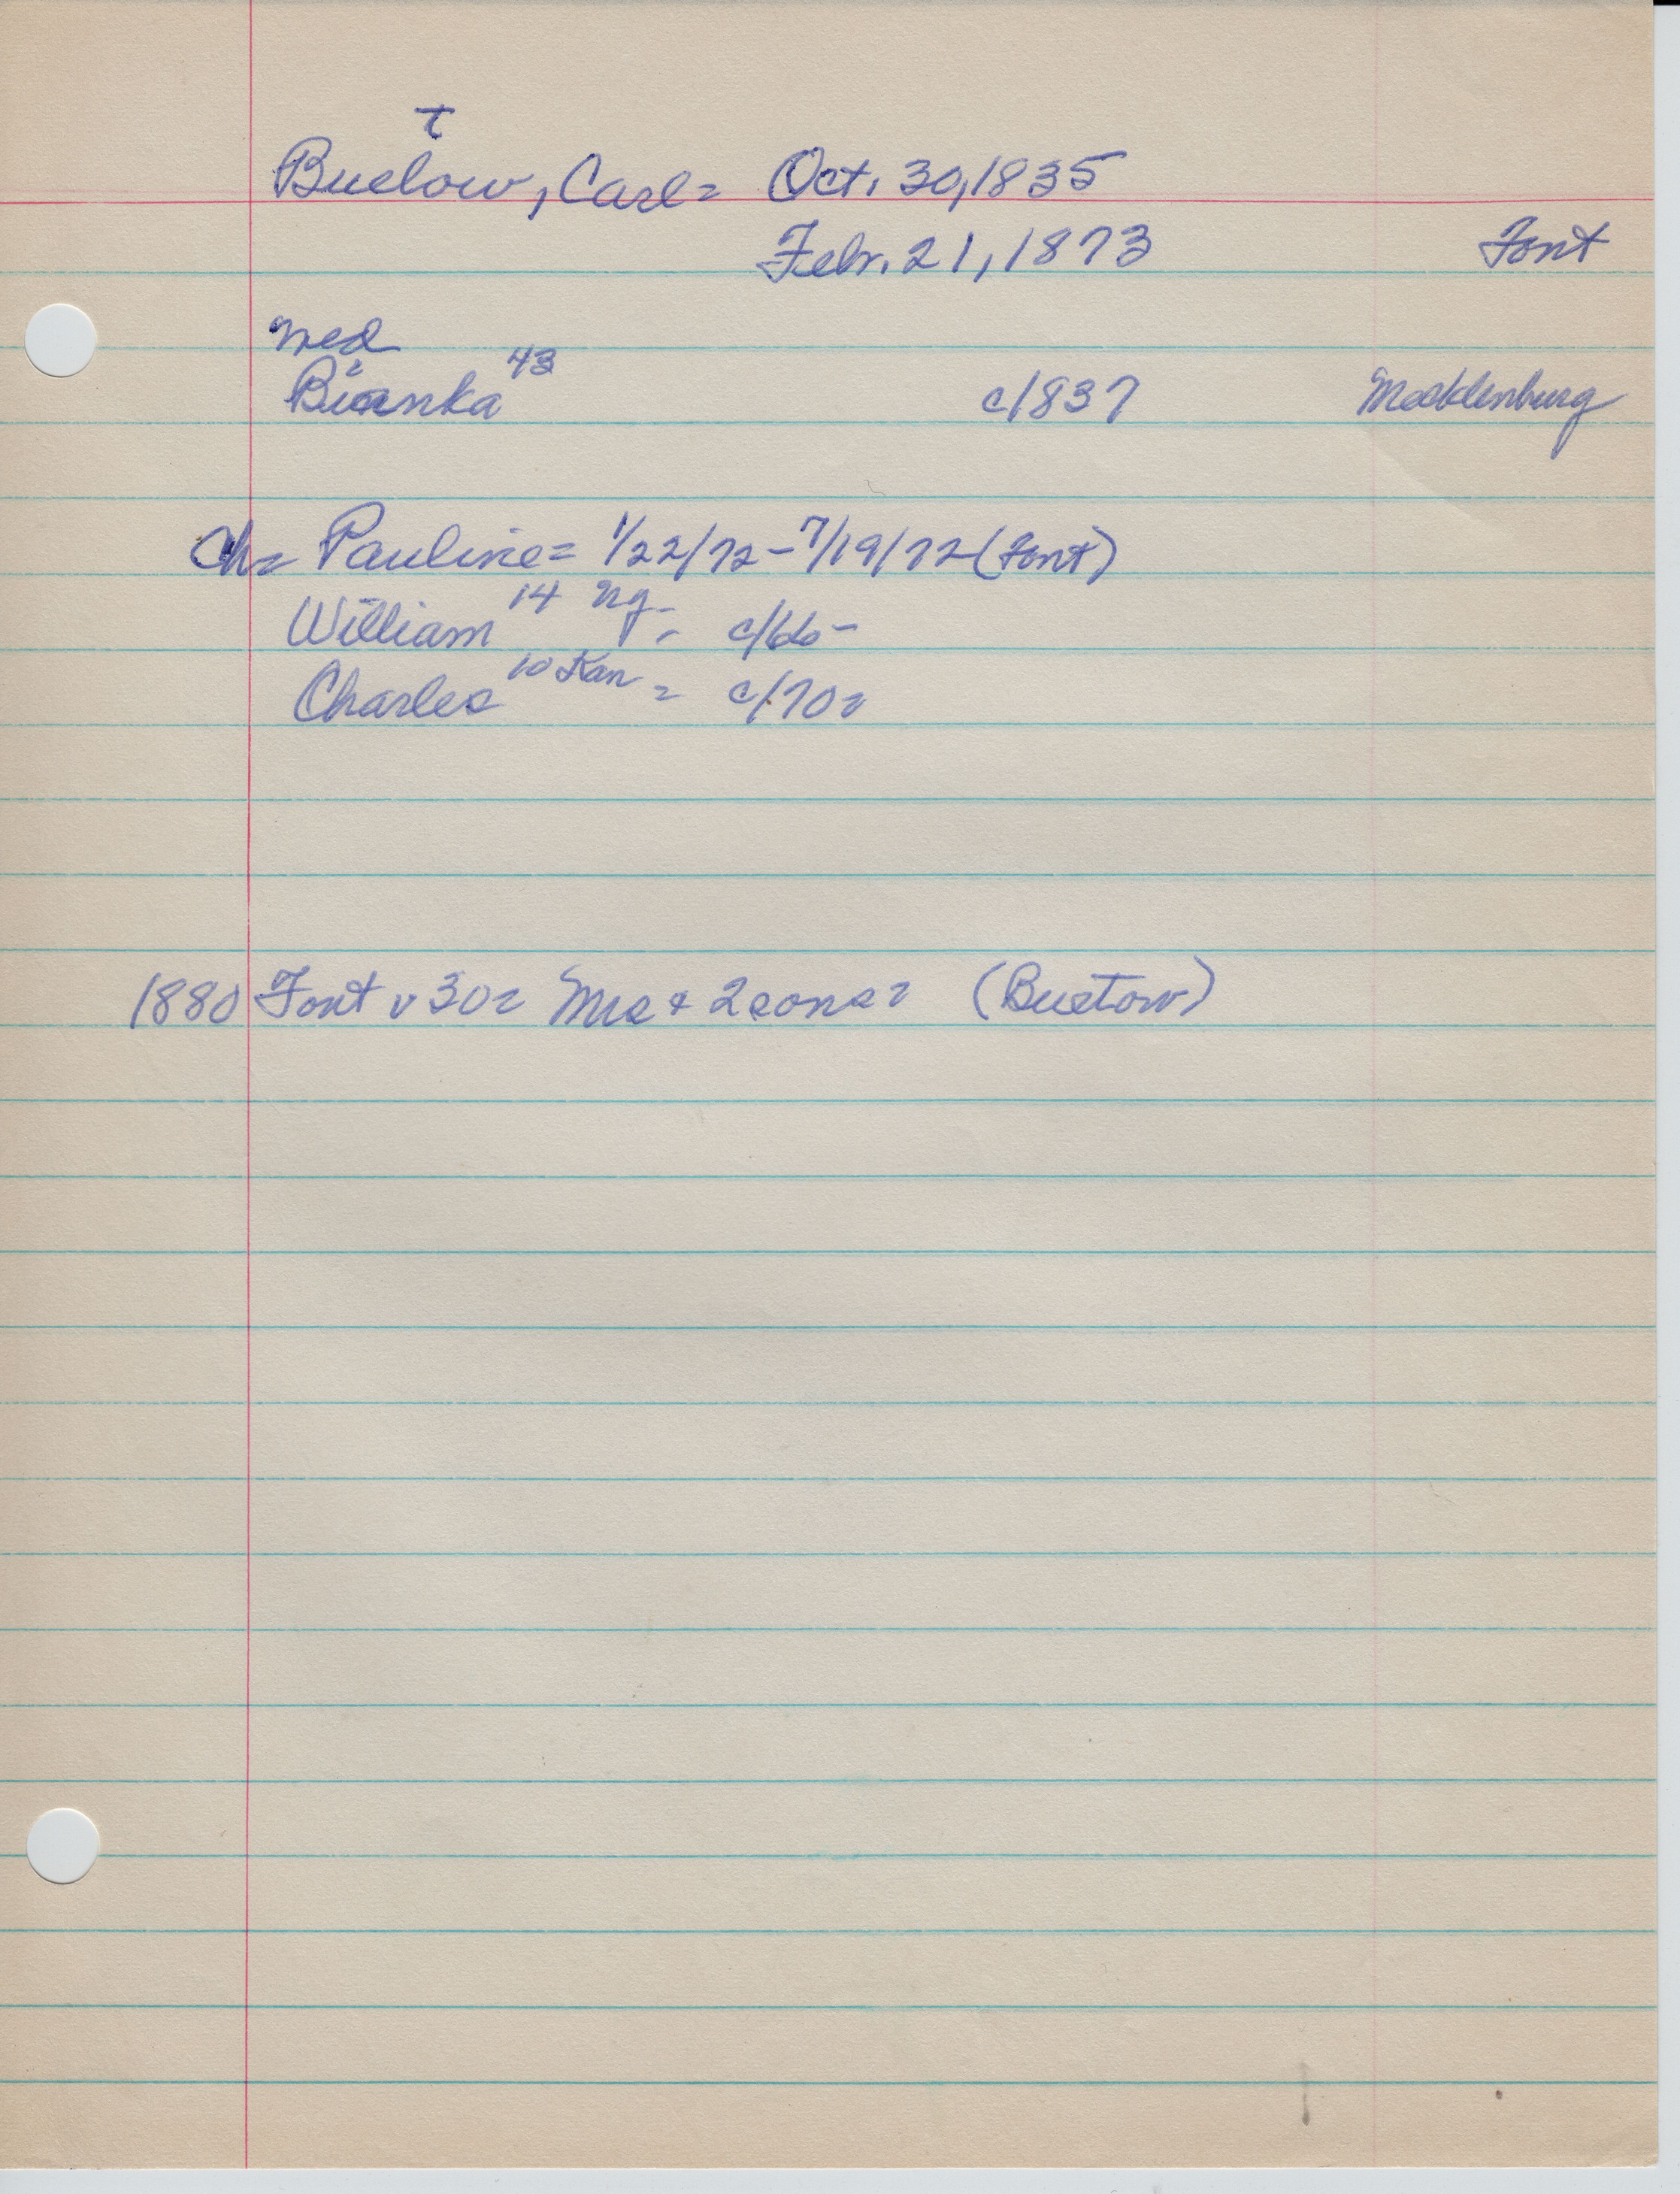 t
Buelow, Carl= Oct. 30, 1835
Febr. 21, 1873 Font
med
Bianka 43 c/837 Mecklenburg
Ch= Pauline= 1/22/72-7/19/72 (Font)
William 14 Ny- - c/66-
Charles 10 Kan = c/70=
1880 Font v 30= Mrs + 2 sons= (Buetow)